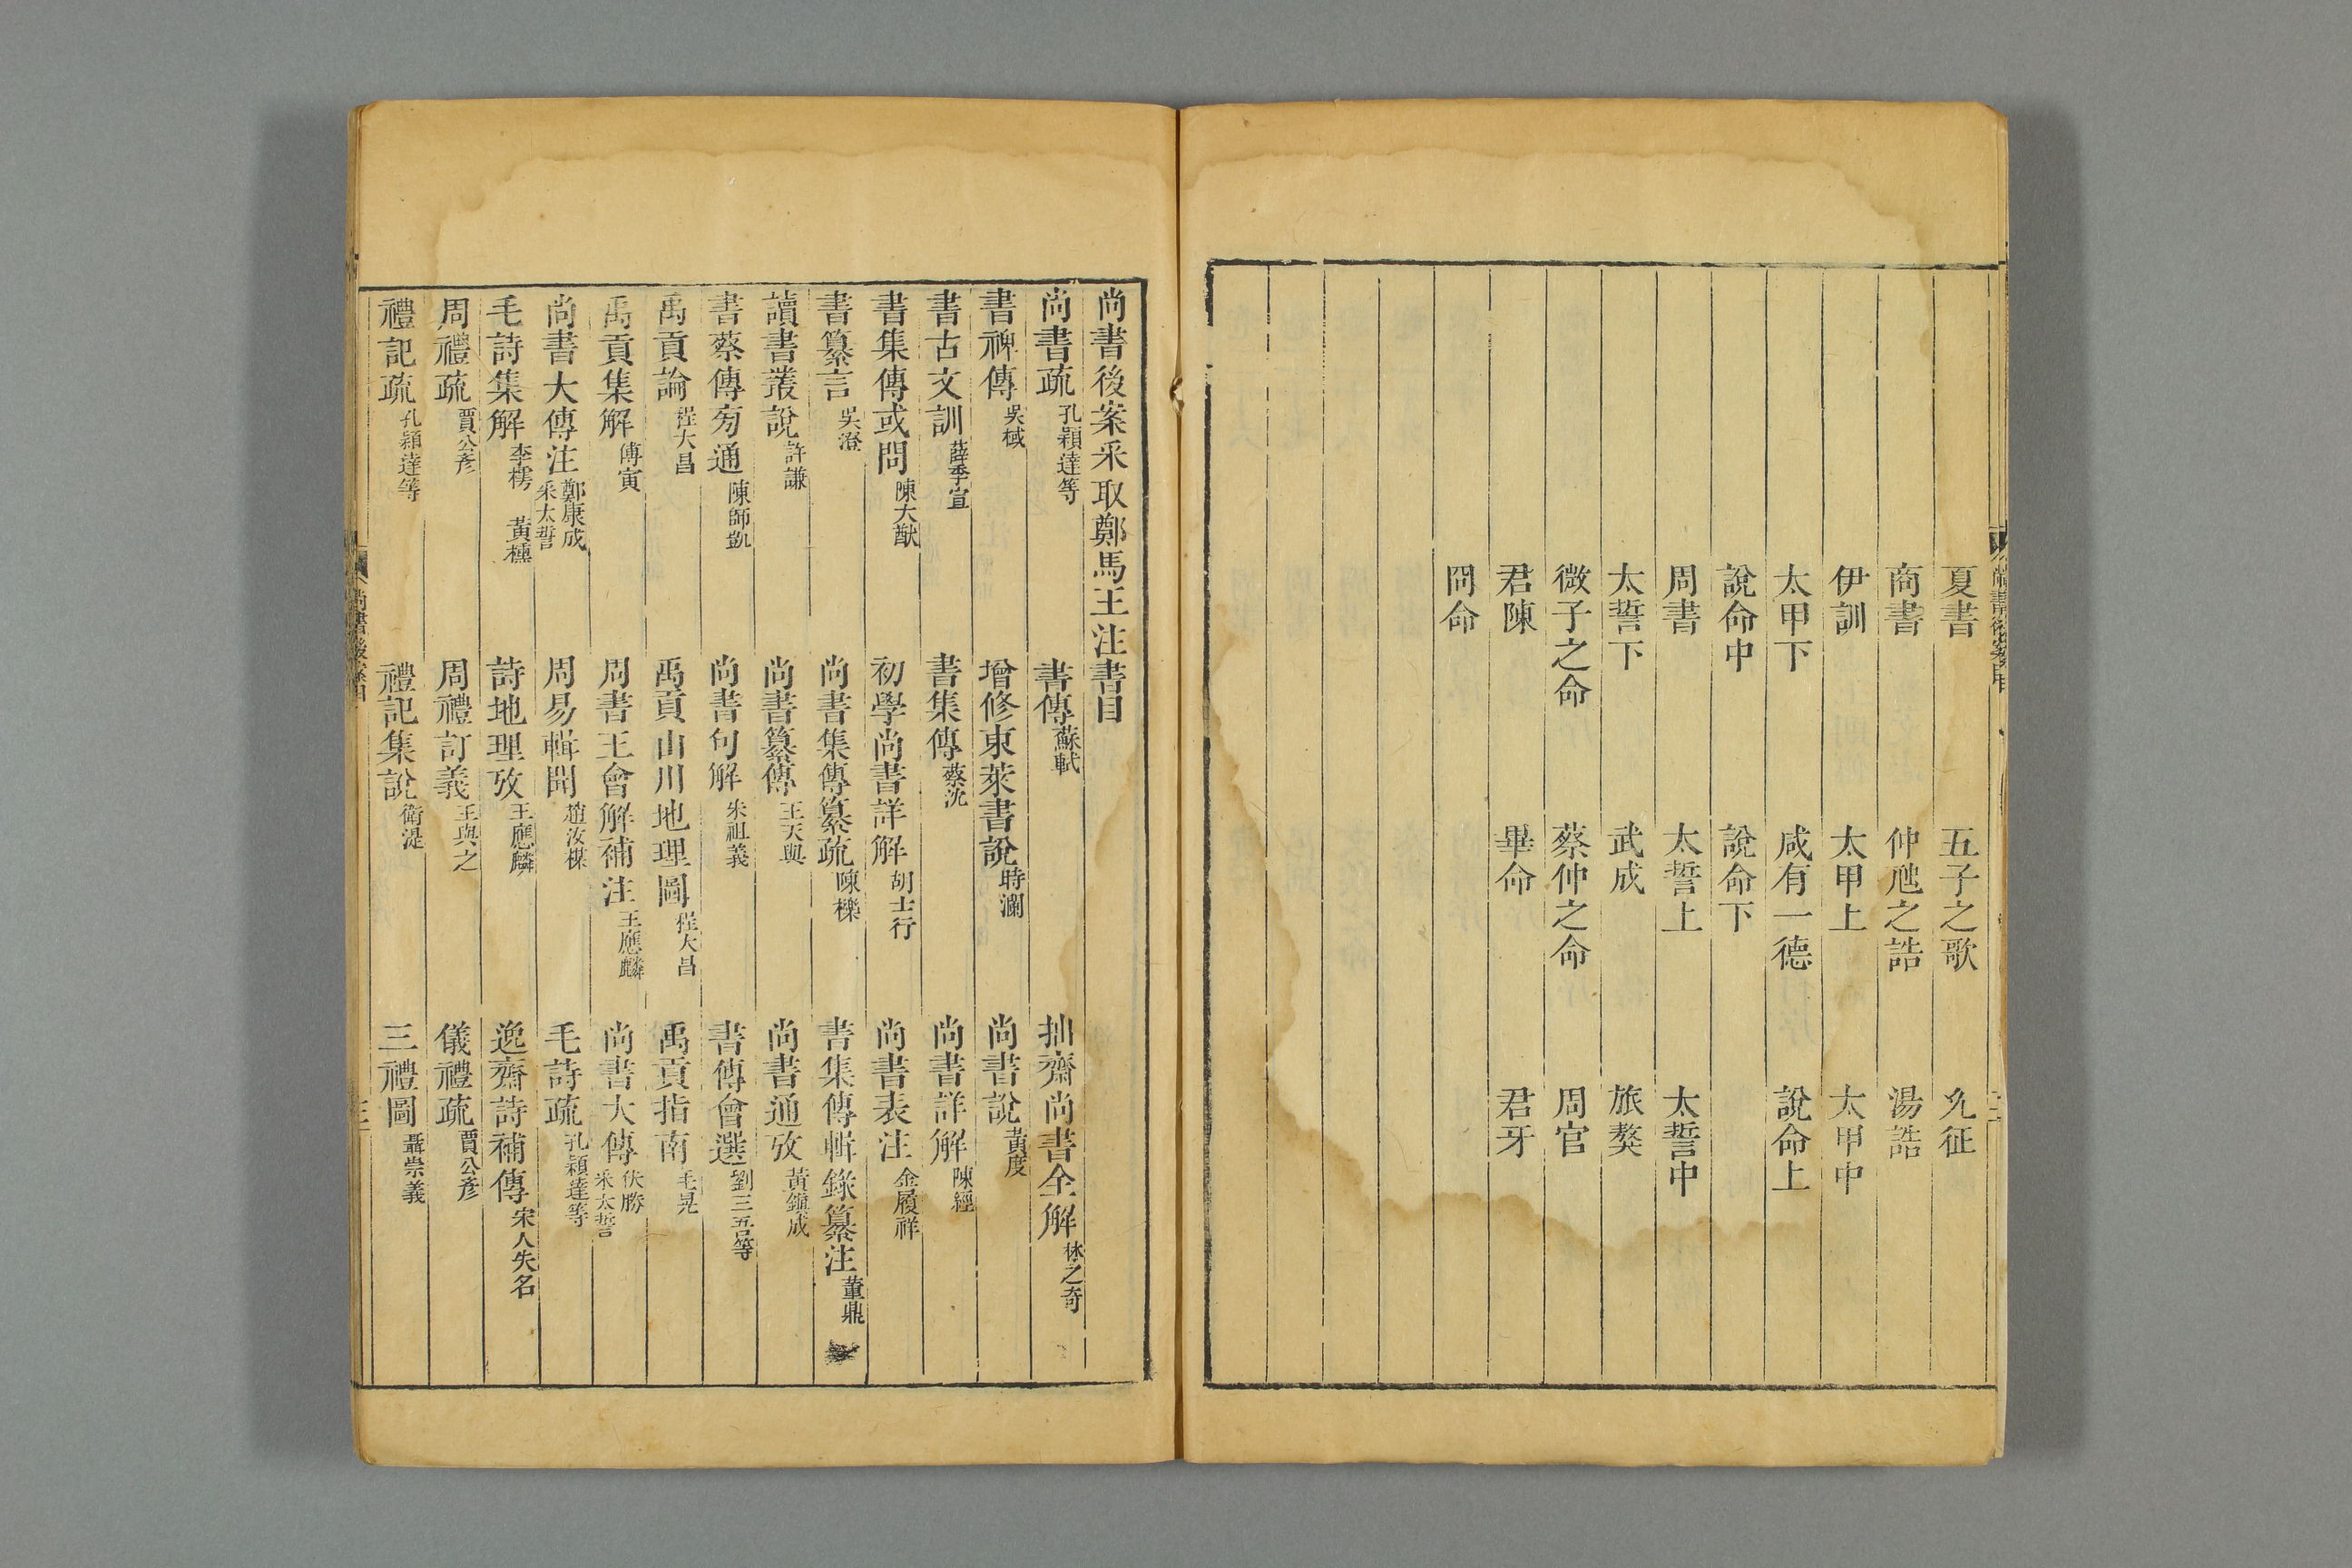 夏書 五子之歌 𠃔征
商書 仲虺之誥 湯誥
伊訓 太甲上 太甲中
太甲下 咸有一德 說命上
說命中 說命下
周書 太誓上 太誓中
太誓下 武成 旅獒
微子之命 蔡仲之命 周官
君陳 畢命 君牙
冏命
尚書後案采取鄭馬王注書目
尚書疏 孔穎達等 書傳 蘇軾 拙齋尚書全解 林之奇
書裨傳 吳棫 增修東萊書說 時瀾 尚書說 黃度
書古文訓 薛季宣 書集傳 蔡沈 尚書詳解 陳經
書集傳或問 陳大猷 初學尚書詳解 胡士行 尚書表注 金履祥
書纂言 吳澄 尚書集傳纂疏 陳櫟 書集傳輯錄纂注 董鼎
讀書叢說 許謙 尚書纂傳 王天與 尚書通攷 黃鎮成
書蔡傳旁通 陳師凱 尚書句解 朱祖義 書傳會選 劉三吾等
禹貢論 程大昌 禹貢山川地理圖 程大昌 禹貢指南 毛晃
禹貢集解 傅寅 周書王會解補注 王應麟 尚書大傳 伏勝 采太誓
尚書大傳注 鄭康成 采太誓 周易輯聞 趙汝楳 毛詩疏 孔穎達等
毛詩集解 李樗 黃櫄 詩地理攷 王應麟 逸齋詩補傳 宋人失名
周禮疏 賈公彥 周禮訂義 王與之 儀禮疏 賈公彥
禮記疏 孔穎達等 禮記集說 衛湜 三禮圖 聶崇義
尚書後案目 三